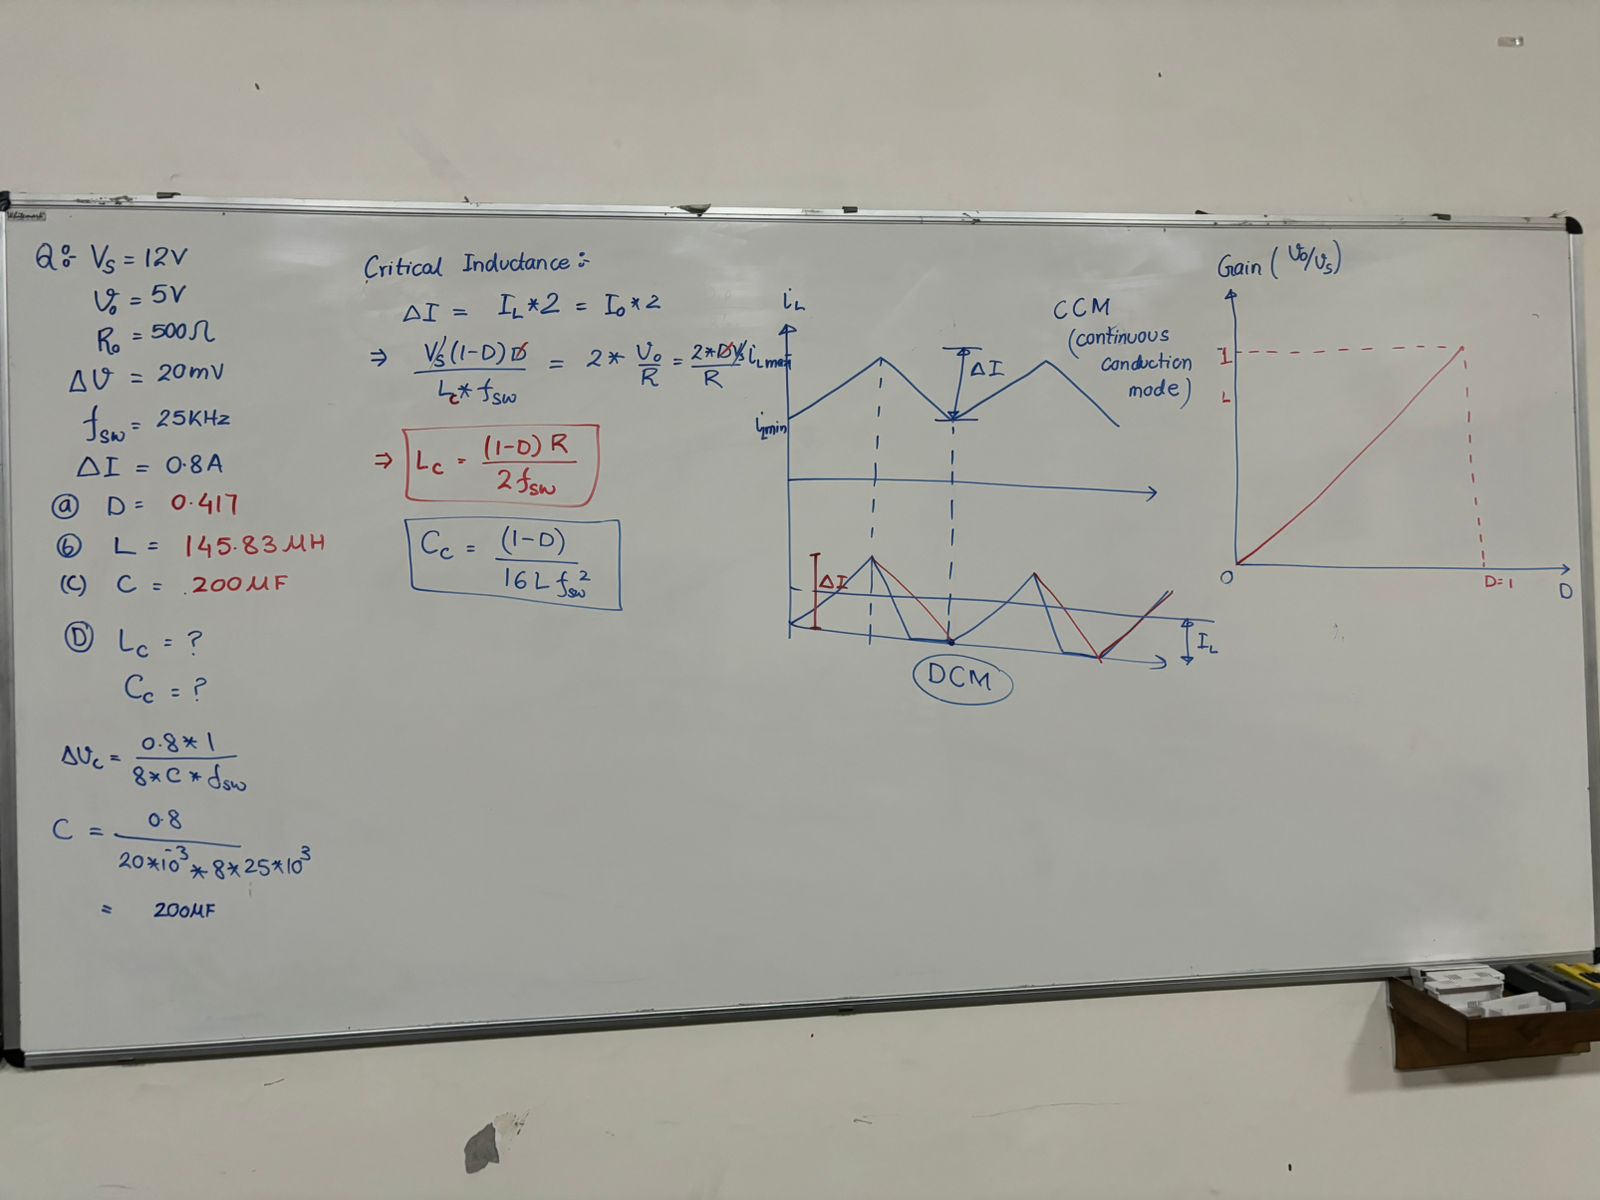 Whitemark
Q:- VS = 12V
Vo = 5V
Ro = 500Ω
ΔV = 20mV
fsw = 25KHz
ΔI = 0.8A
(a) D = 0.417
(b) L = 145.83 μH
(C) C = 200μF
(D) LC = ?
CC = ?
ΔVc = 0.8*1 / 8*C*fsw
C = 0.8 / 20*10^-3 * 8*25*10^3
= 200μF
Critical Inductance :-
ΔI = IL*2 = Io*2
⇒ VS(1-D)D / Lc*fsw = 2* Vo/R = 2*DVS/R
⇒ LC = (1-D) R / 2fsw
CC = (1-D) / 16Lfsw^2
iL
CCM
(continuous
conduction
mode)
iLmax
ΔI
iLmin
ΔI
IL
DCM
Gain (Vo/VS)
1
L
O
D=1
D